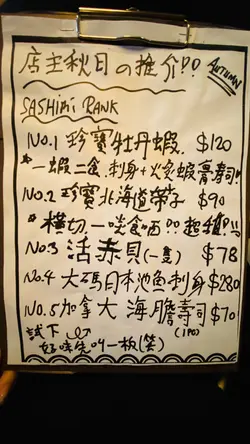 店主秋日の推介!!
AUTUMN
SASHIMI RANK
No.1 珍寶牡丹蝦. $120
* 一蝦二食.刺身+火炙蝦膏壽司!
No.2 珍寶北海道帶子 $90
* 橫切一啖食晒!! 超推!!!
No.3 活赤貝(一隻) $78
No.4 大碼日本池魚刺身 $280
No.5 加拿大海膽壽司 $70
(1PC)
試下
好味先叫一板(笑)